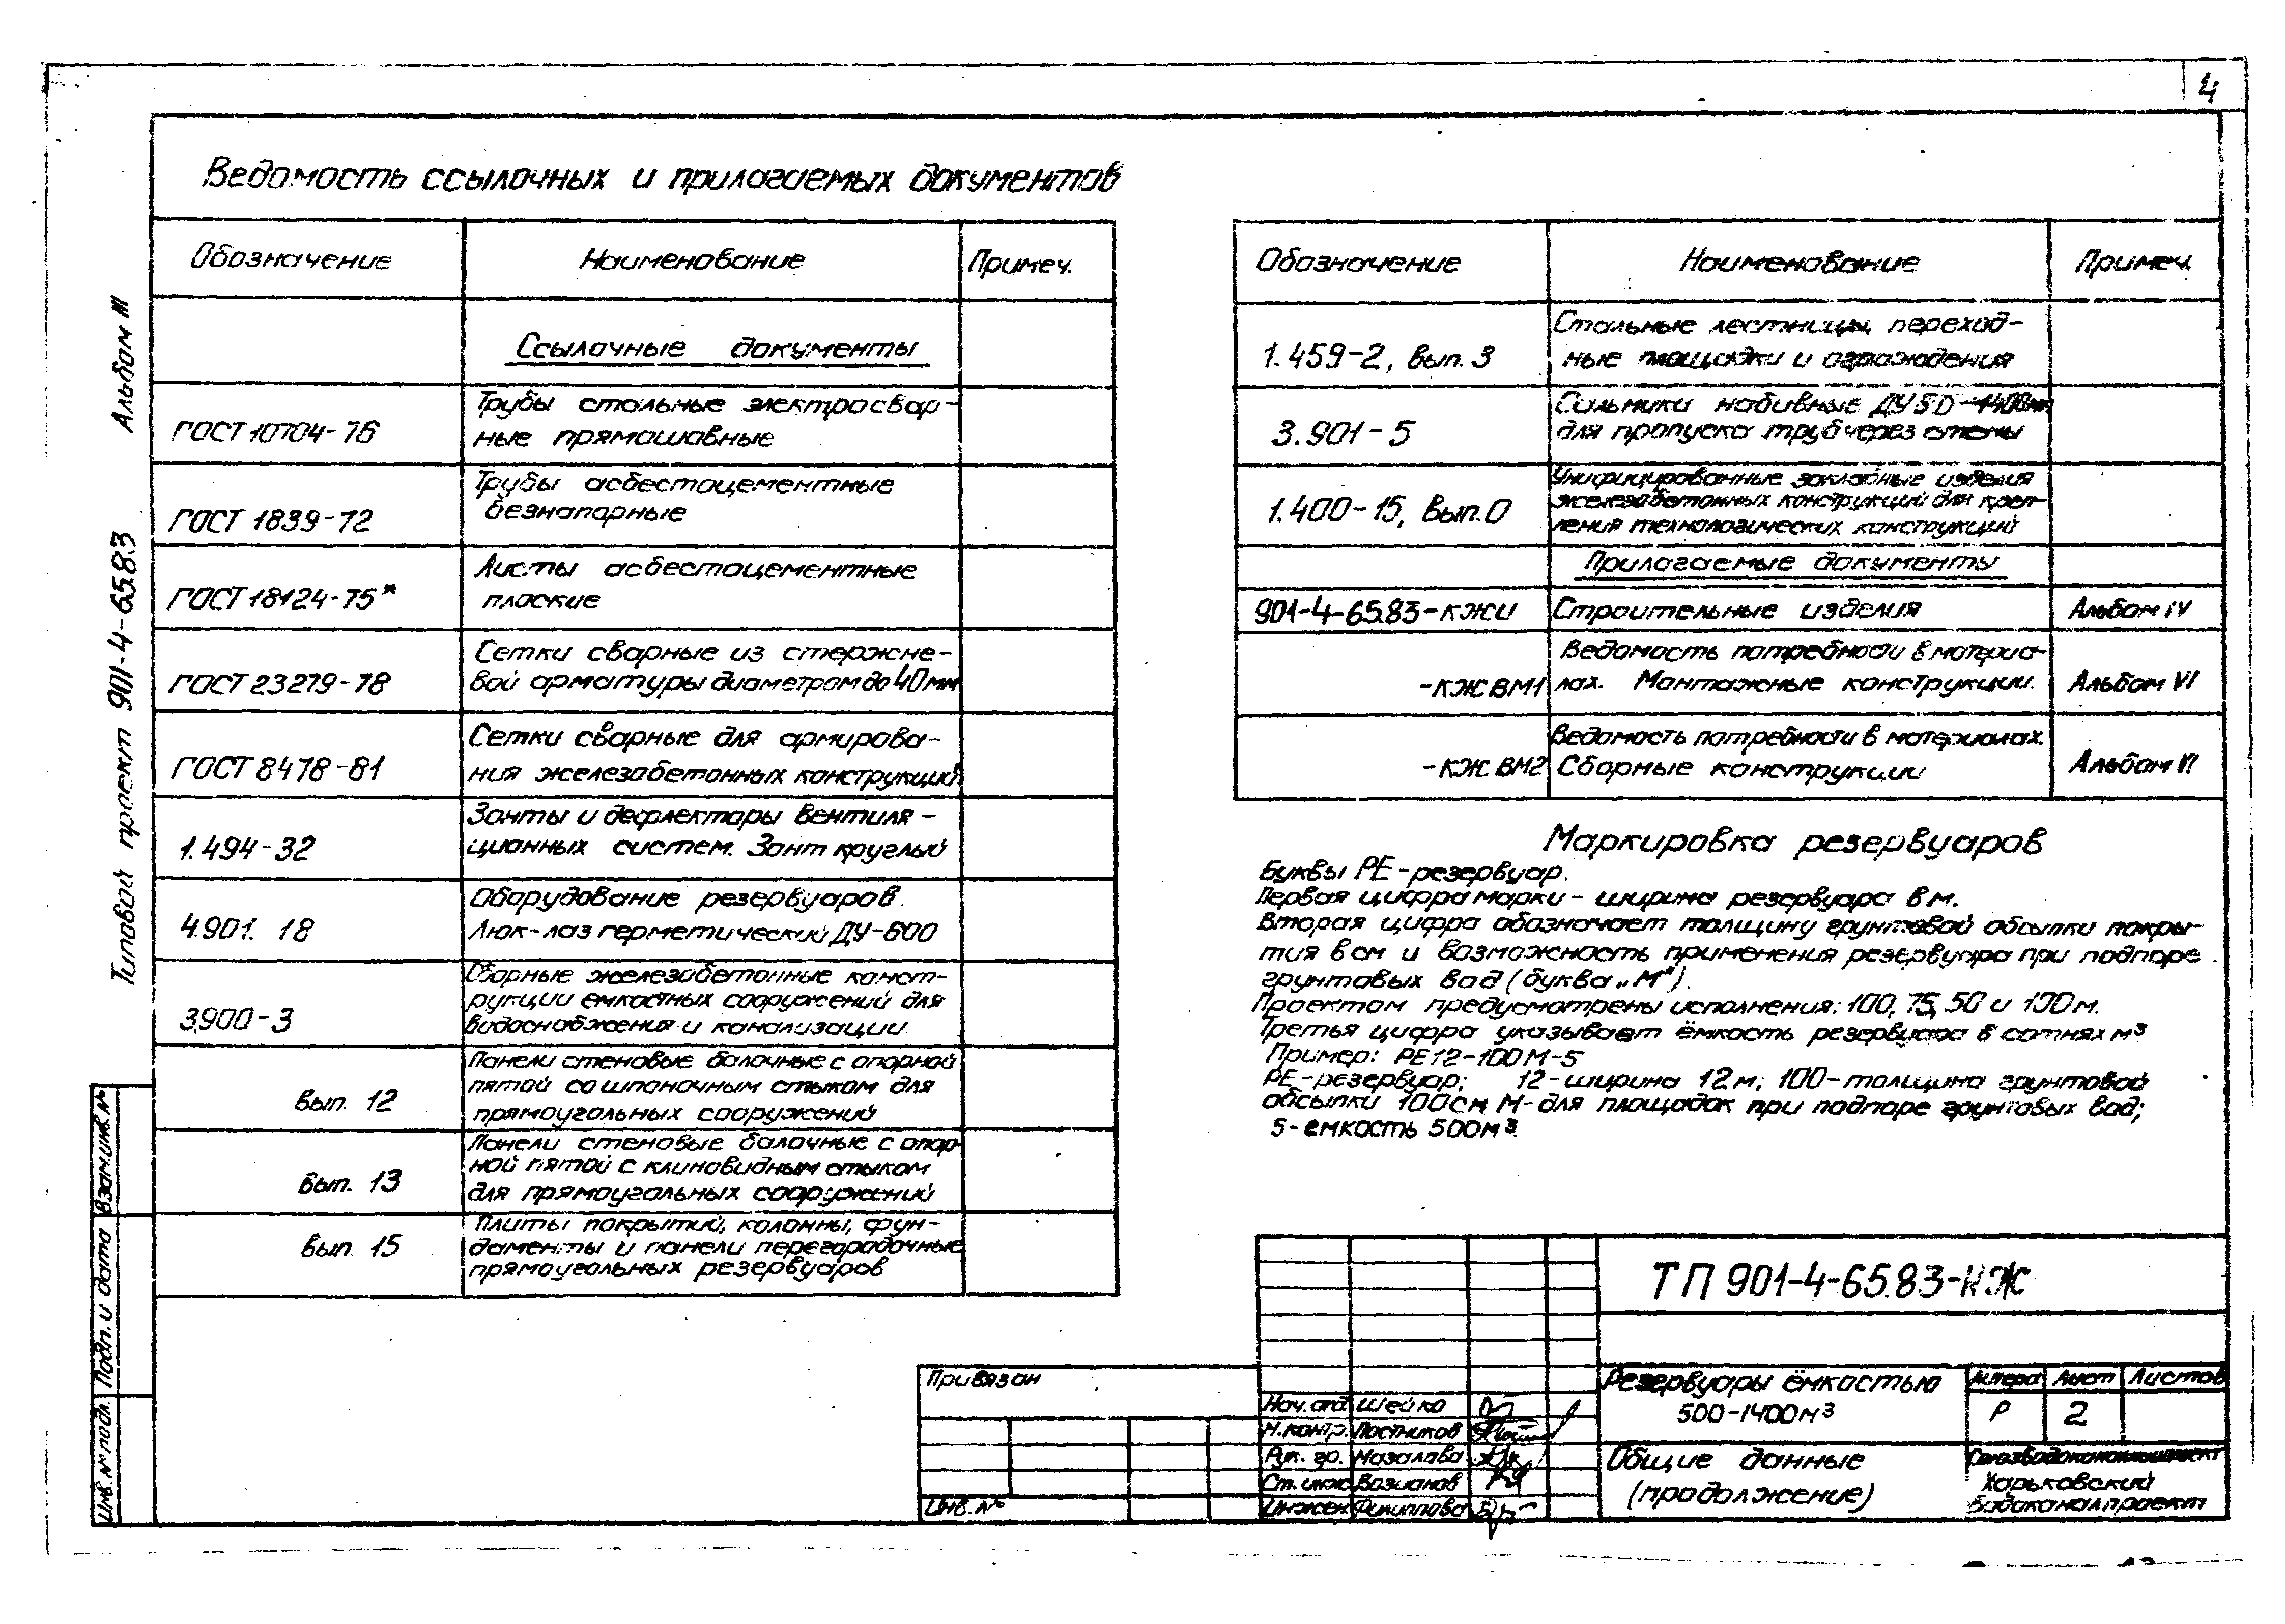 4
Ведомость ссылочных и прилагаемых документов
Обозначение Наименование Примеч.
Ссылочные документы
ГОСТ 10704-76
Трубы стальные электросвар-
ные прямошовные
ГОСТ 1839-72
Трубы асбестоцементные
безнапорные
ГОСТ 18124-75*
Листы асбестоцементные
плоские
ГОСТ 23279-78
Сетки сварные из стержне-
вой арматуры диаметром до 40 мм
ГОСТ 8478-81
Сетки сварные для армирова-
ния железобетонных конструкций
1.494-32
Зонты и дефлекторы вентиля-
ционных систем. Зонт круглый
4.901. 18
Оборудование резервуаров.
Люк-лаз герметический ДУ-600
3.900-3
Сборные железобетонные конст-
рукции емкостных сооружений для
водоснабжения и канализации.
Вып. 12
Панели стеновые балочные с опорной
пятой со шпоночным стыком для
прямоугольных сооружений
Вып. 13
Панели стеновые балочные с опор-
ной пятой с клиновидным стыком
для прямоугольных сооружений
Вып 15
Плиты покрытий, колонны, фун-
даменты и панели перегородочные
прямоугольных резервуаров
Обозначение Наименование Примеч.
1.459-2, Вып. 3
Стальные лестницы, переход-
ные площадки и ограждения
3.901-5
Сальники набивные ДУ50-1400мм
для пропуска труб через стены
1.400-15, Вып.0
Унифицированные закладные изделия
железобетонных конструкций для креп-
ления технологических конструкций
Прилагаемые документы
901-4-65.83-КЖИ Строительные изделия Альбом IV
-КЖ ВМ1
Ведомость потребности в материа-
лах. Монтажные конструкции.
Альбом VI
-КЖ ВМ2
Ведомость потребности в материалах.
Сборные конструкции
Альбом VI
Маркировка резервуаров
Буквы РЕ-резервуар.
Первая цифра марки - ширина резервуара в м.
Вторая цифра обозначает толщину грунтовой обсыпки покры-
тия в см и возможность применения резервуара при подпоре
грунтовых вод (буква „М").
Проектом предусмотрены исполнения: 100, 75, 50 и 100м.
Третья цифра указывает ёмкость резервуара в сотнях м³
Пример: РЕ12-100М-5
РЕ-резервуар; 12-ширина 12м; 100-толщина грунтовой
обсыпки 100см М-для площадок при подпоре грунтовых вод;
5-емкость 500м³.
Типовой проект 901-4-65.83 Альбом III
Инв. № подл. Подп. и дата Взам. инв. №
Привязан
Инв. №
Нач. отд Шейко
Н.контр. Постников
Рук. гр. Мазалова
Ст. инж Возианов
Инжен. Филиппова
ТП 901-4-65.83-КЖ
Резервуары ёмкостью
500-1400м³
Литера Лист Листов
Р 2
Общие данные
(продолжение)
Союзводоканалпроект
Харьковский
Водоканалпроект